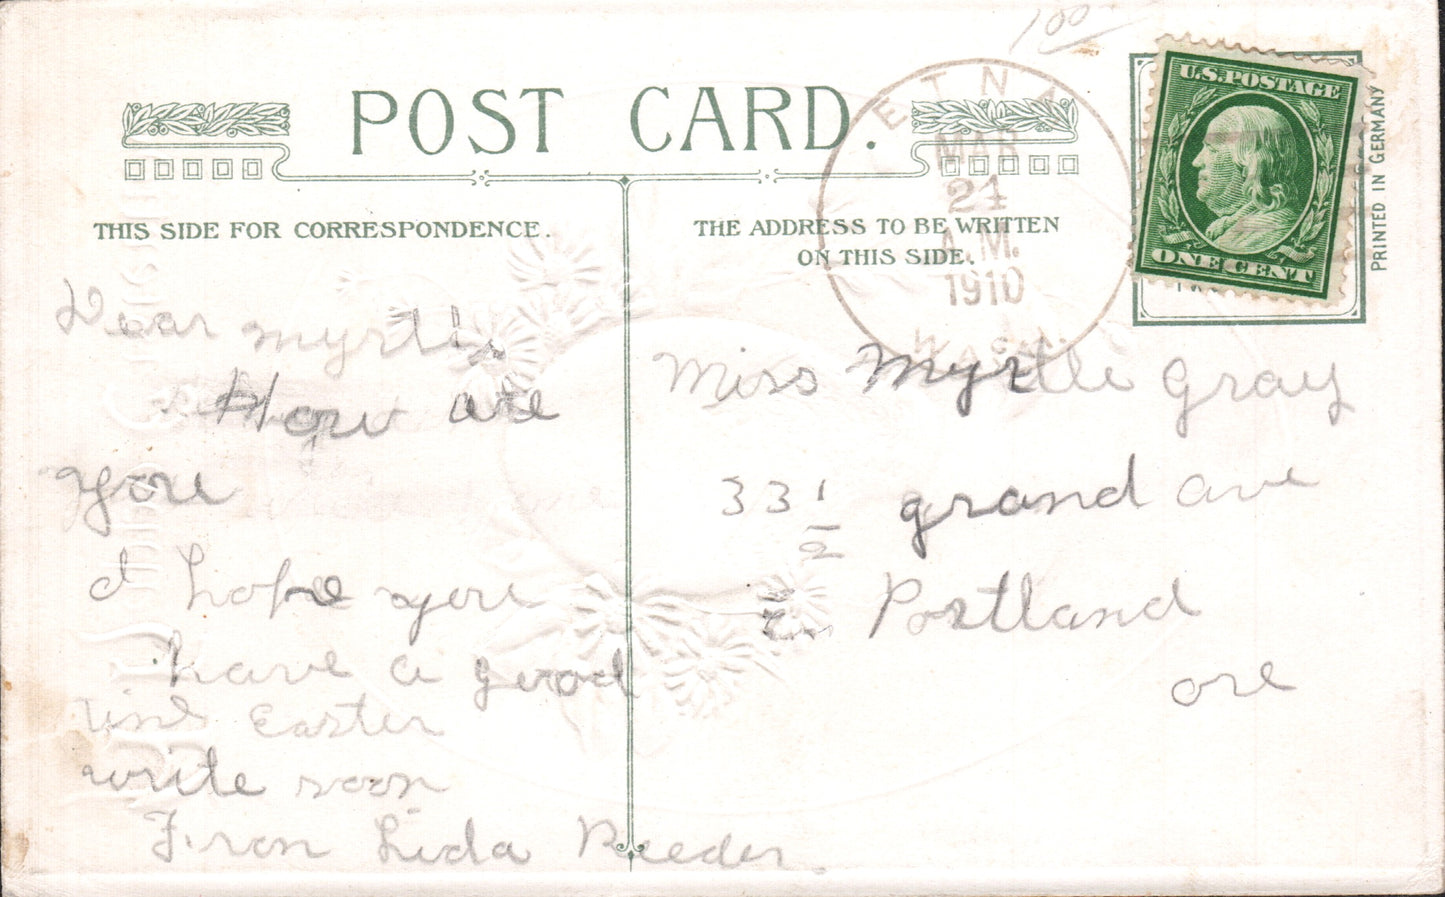 100
POST CARD.
ETNA
MAR
24
A.M.
1910
WASH.
U.S. POSTAGE
ONE CENT
PRINTED IN GERMANY
THIS SIDE FOR CORRESPONDENCE.
THE ADDRESS TO BE WRITTEN
ON THIS SIDE.
Dear Myrtle
How are
you
I hope you
have a good
time Easter
write soon
From Lida Reeder
Miss Myrtle Gray
33 1/2 grand ave
E. Portland
ore